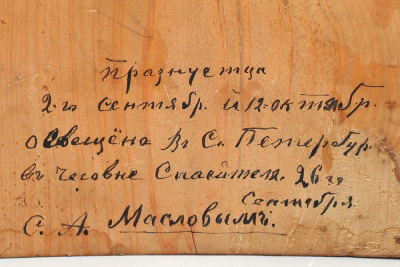 празнуетца
2-го сентябр. й 12-октябр.
освещёна Въ С. Петербур.
въ часовне Спасителя. 26 го
Сентября
С. А. Масловымъ.